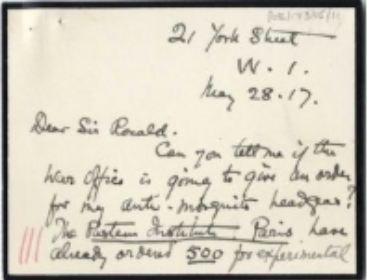 21 York Street
W. 1.
May 28. 17.
Dear Sir Ronald.
Can you tell me if the
War Office is going to give an order
for my anti-mosquito headgear?
The Pasteur Institute, Paris have
already ordered 500 for experimental